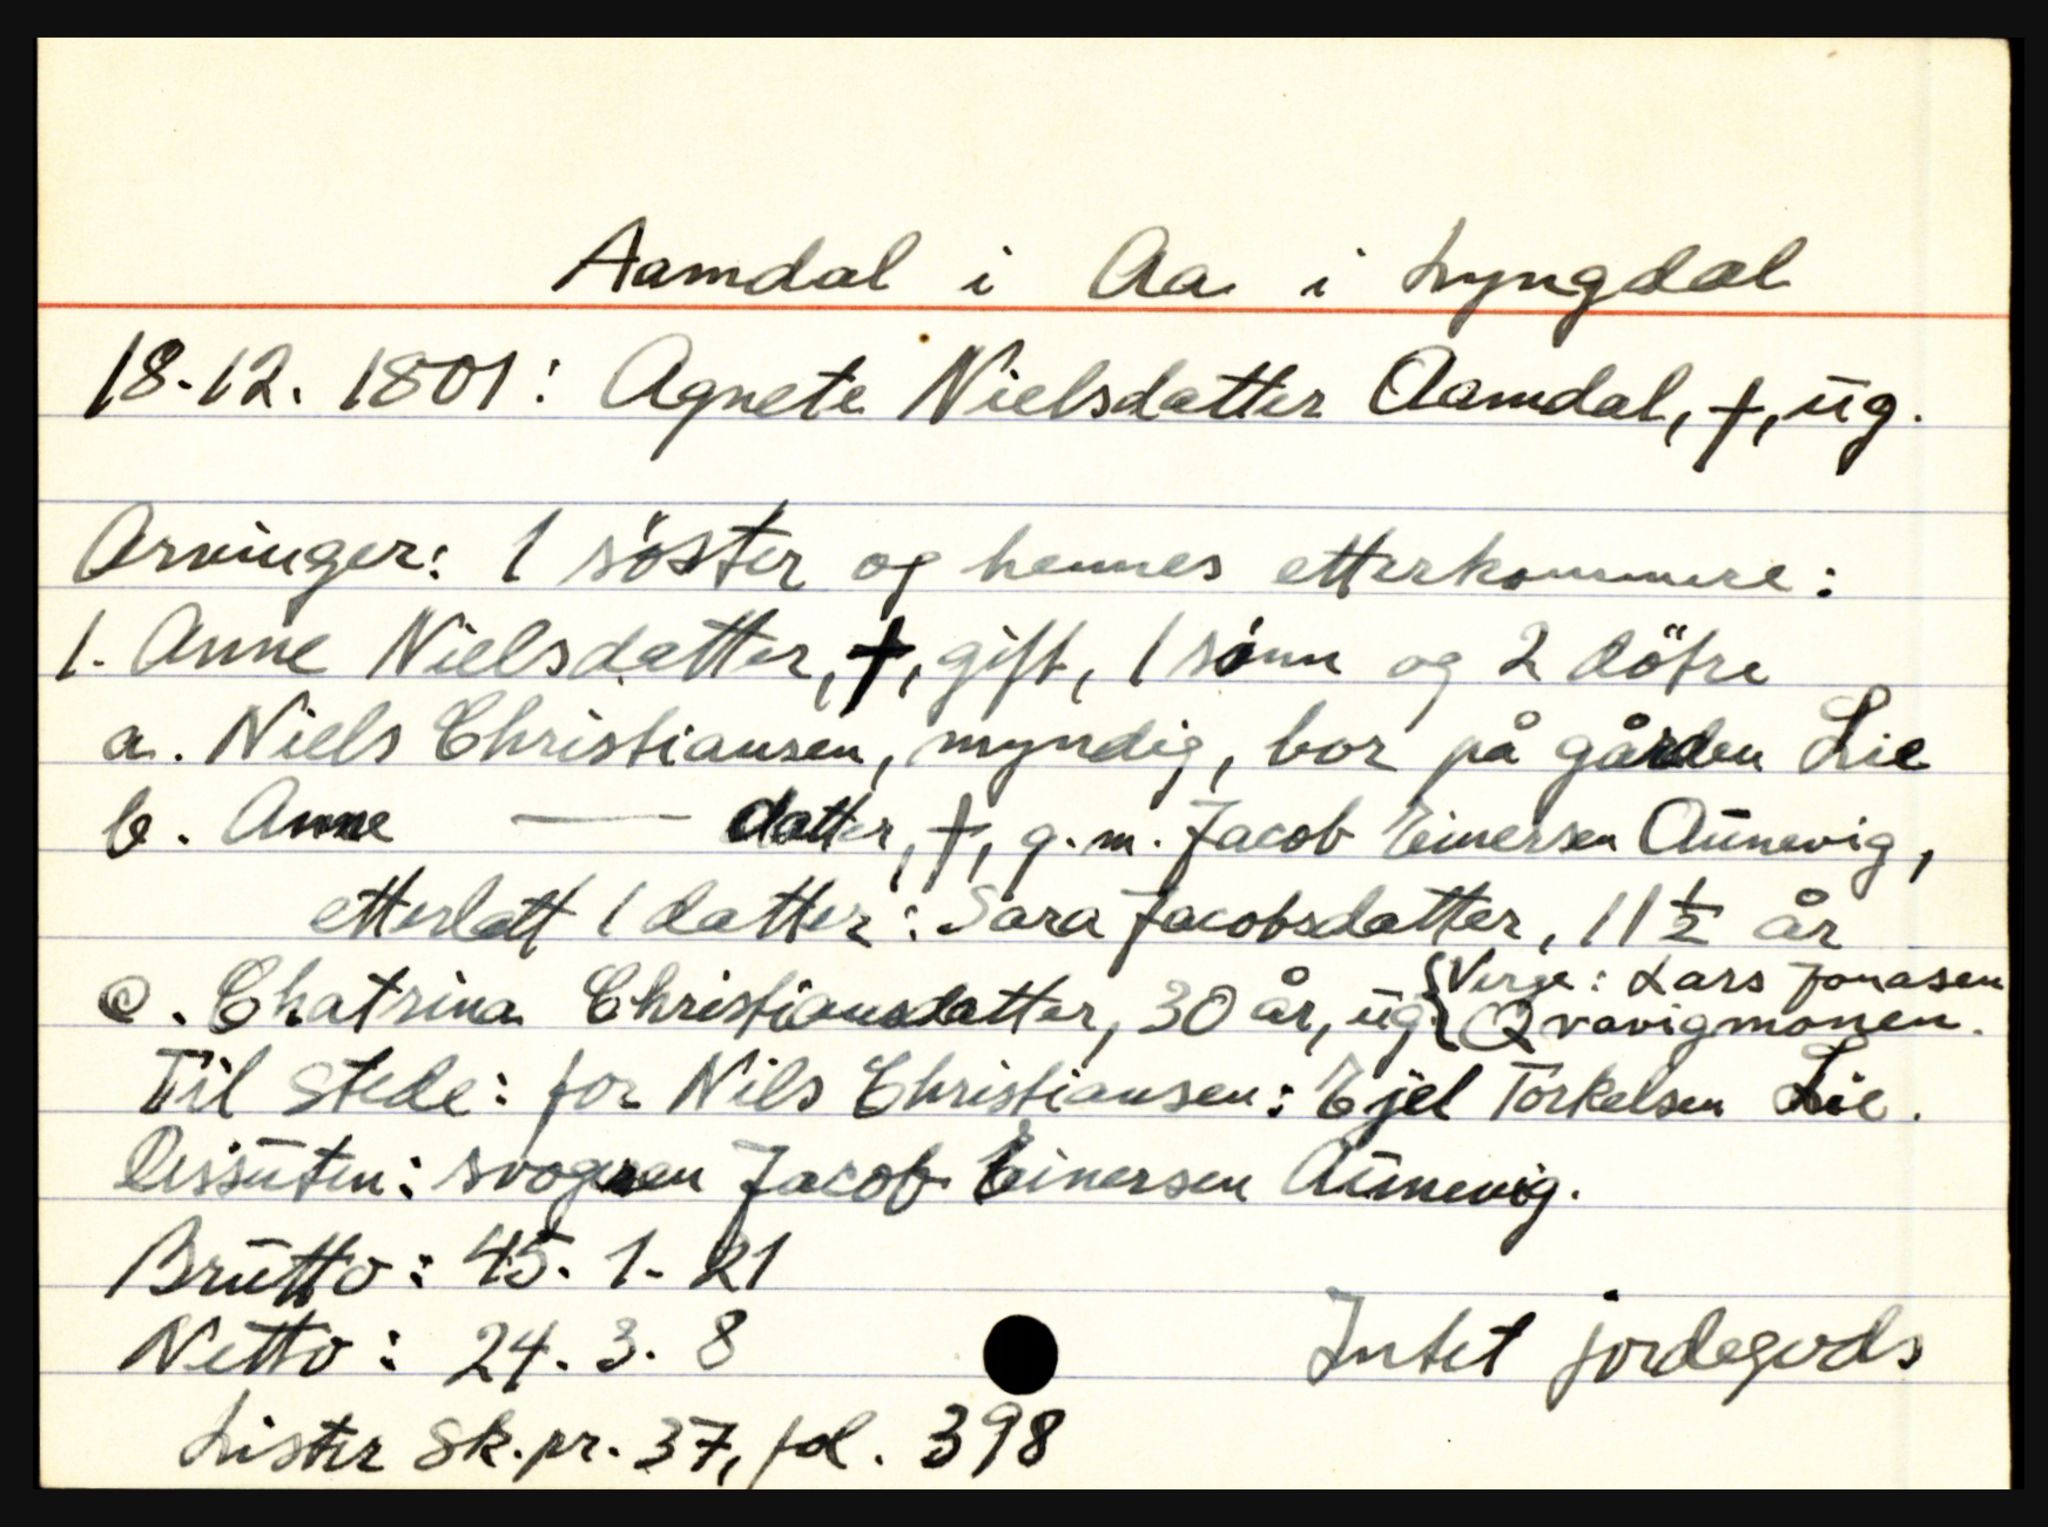 Aamdal i Aa i Lyngdal
18.12. 1801: Agnete Nielsdatter Aamdal, †, ug.
Arvinger: 1 söster og hennes etterkommere:
1. Anne Nielsdatter, †, gift, 1 sönn og 2 dötre
a. Niels Christiansen, myndig, bor på gården Lie
b. Anne — datter, †, g.m. Jacob Einersen Aunevig,
etterlatt 1 datter: Sara Jacobsdatter, 11 ½ år
c. Chatrina Christiansdatter, 30 år, ug {Verge: Lars Jonasen
Qvavigmonen.
Til stede: for Nils Christiansen: Ejel Torkelsen Lie.
Dessuten: svogeren Jacob Einersen Aunevig.
Brutto: 45. 1. 21
Netto: 24. 3. 8 Intet jordegods
Lister Sk.pr. 37, fol. 398